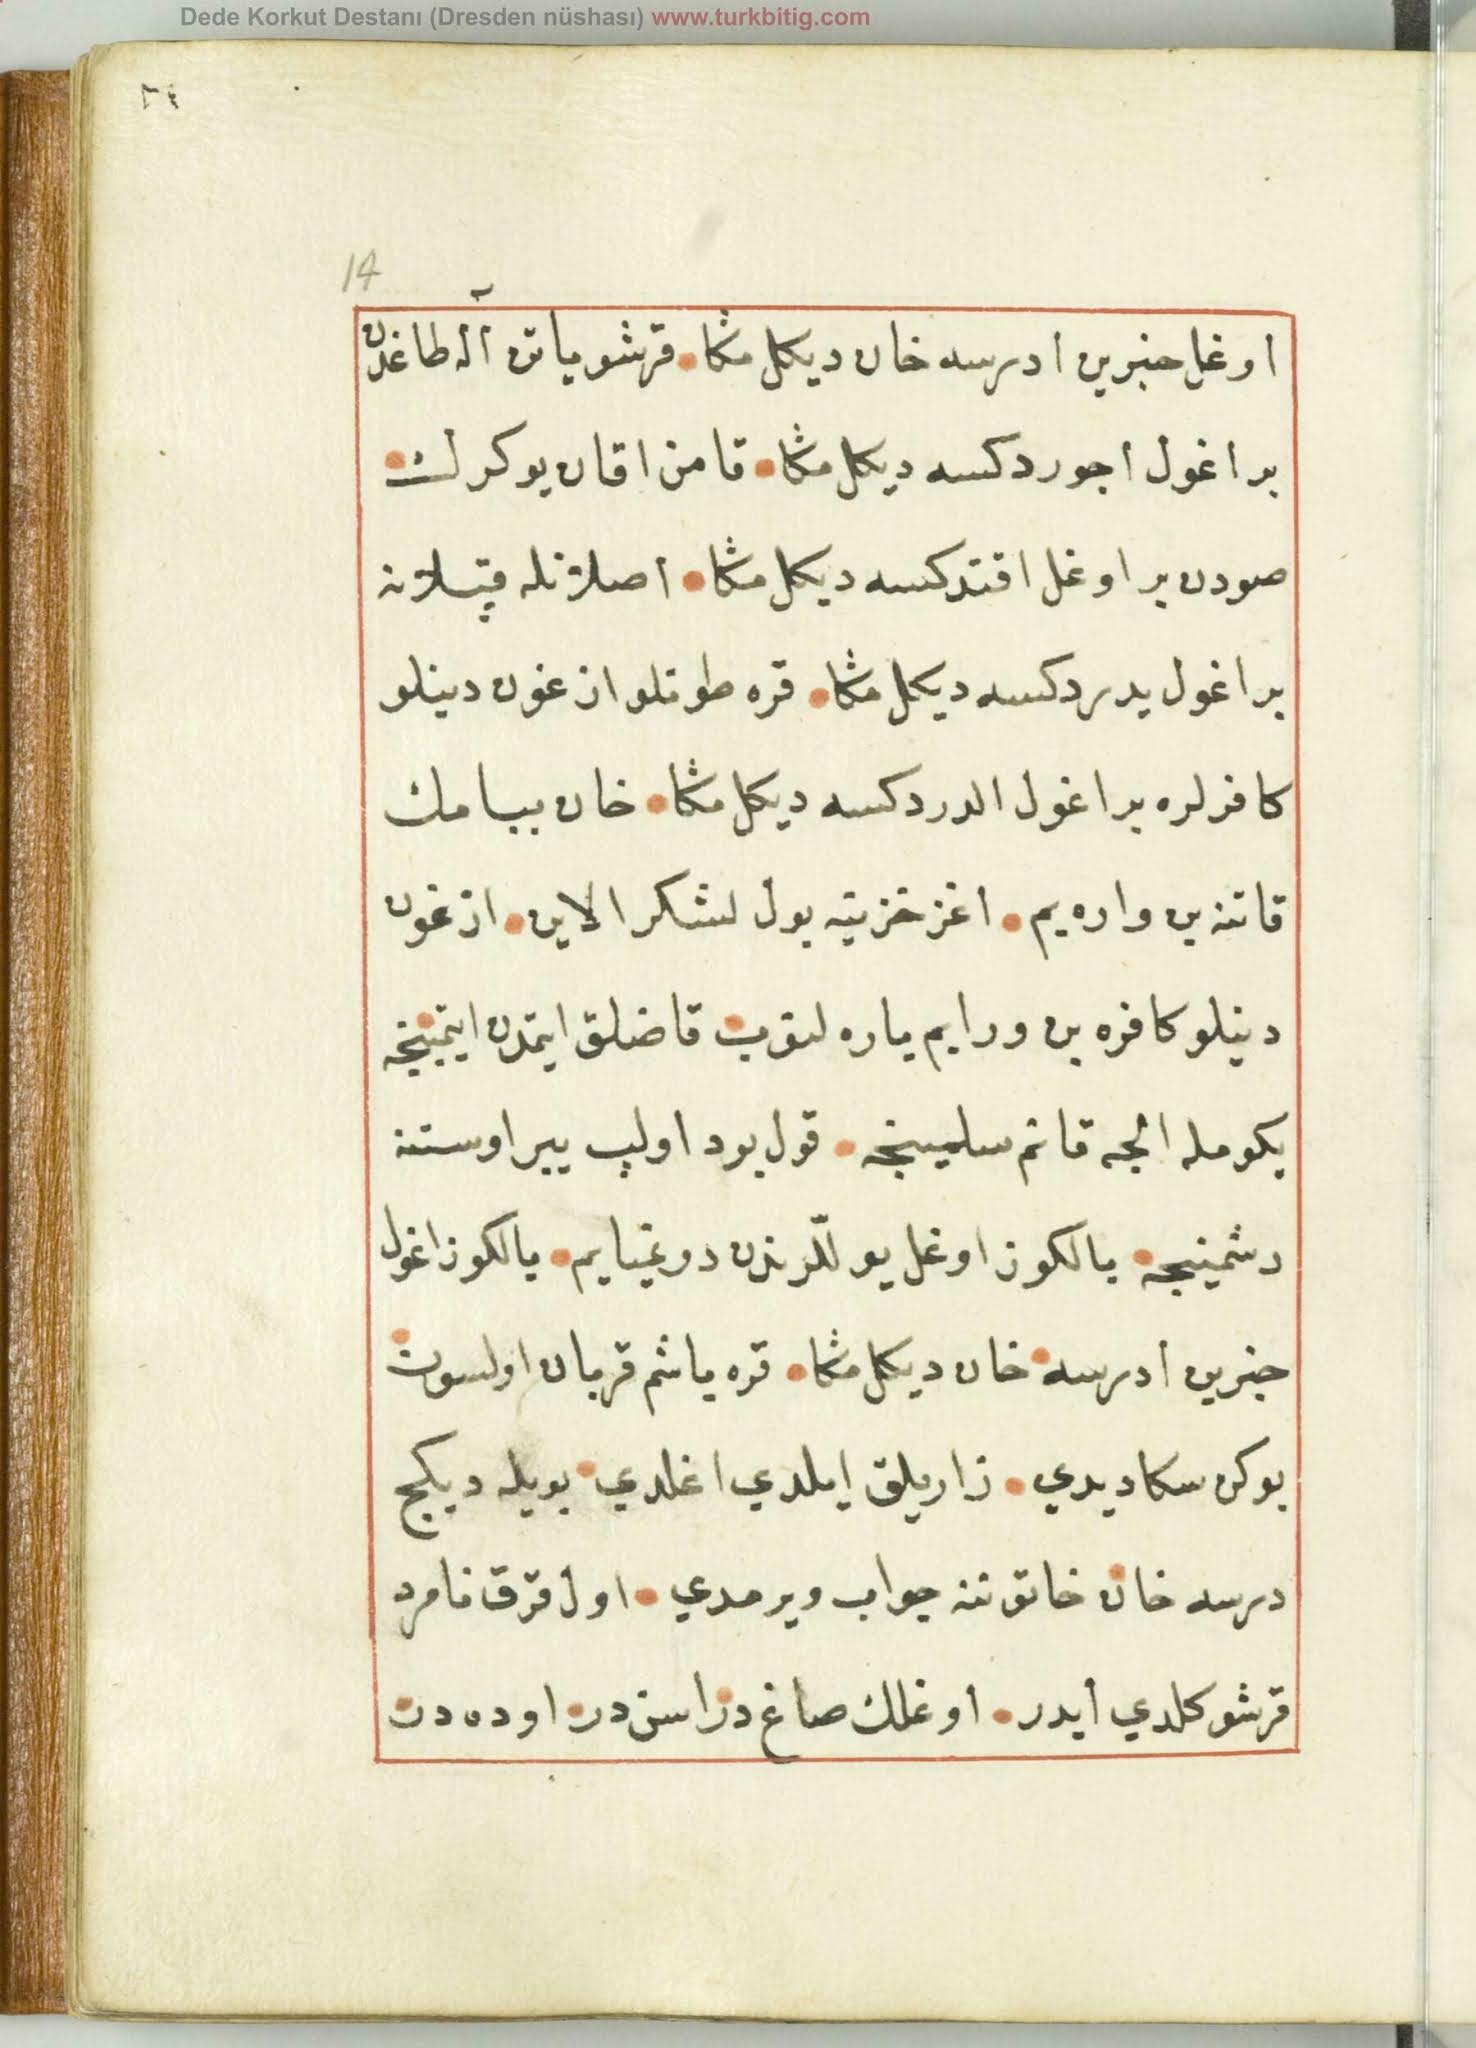 Dede Korkut Destanı (Dresden nüshası) www.turkbitig.com
٢٤
14
اوغل خبرین ادرسه خان دیكل مڭا قرشو یاتن آله طاغدن
بر اغول اجوردكسه دیكل مڭا قامن اقان یوكرك
صودن بر اوغل اقتدكسه دیكل مڭا اصلانله قپلانه
بر اغول یدردكسه دیكل مڭا قره طونلو ازغون دینلو
كافرلره بر اغول الدردكسه دیكل مڭا خان ببامك
قاتنه بن واره یم اغر خزینه بول لشكر الاین ازغون
دینلو كافره بن ورایم یاره لنوب قاضلق اتمدن اینمینجه
یكومله الجه قانم سلمینجه قول بود اولپ ییر اوستنه
دشمینجه یالكوز اوغل یوللرندن دونمیایم یالكوز اغول
خبرین ادرسه خان دیكل مڭا قره باشم قربان اولسون
بوكن سكا دیدي زاریلق ایلدي اغلدي بویله دیكج
درسه خان خاتوننه جواب ویرمدي اول قرق نامرد
قرشو كلدي ایدر اوغلك صاغ در اسن در اوده در